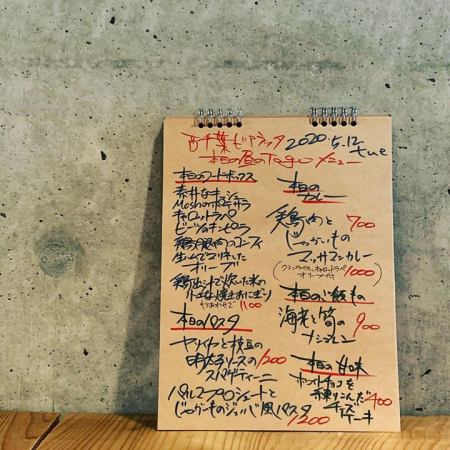 西千葉ビアラック 2020.5.12 tue
本日の昼のTogoメニュー
本日のフードボックス
素朴なキッシュ
Moshのポテサラ
キャロットラペ
ビーツのキンピラ
鶏砂肝のコンフィ
生ハムでつりました
オリーブ
鶏出汁で炊いた米の
焼きおにぎり
1100
本日のパスタ
ヤリイカと枝豆の
明太ソースの1200
スパゲティーニ
パルマプロシュートと
じゃがいものジェノバ風パスタ
1200
本日の
カレー
鶏肉と 700
じゃがいもの
マッサマンカレー
オリーブ付 1000)
本日のご飯もの
海老と筍の 900
ナシゴレン
本日の甘味
ホワイトチョコを
練りこんだ400
チーズ
ケーキ